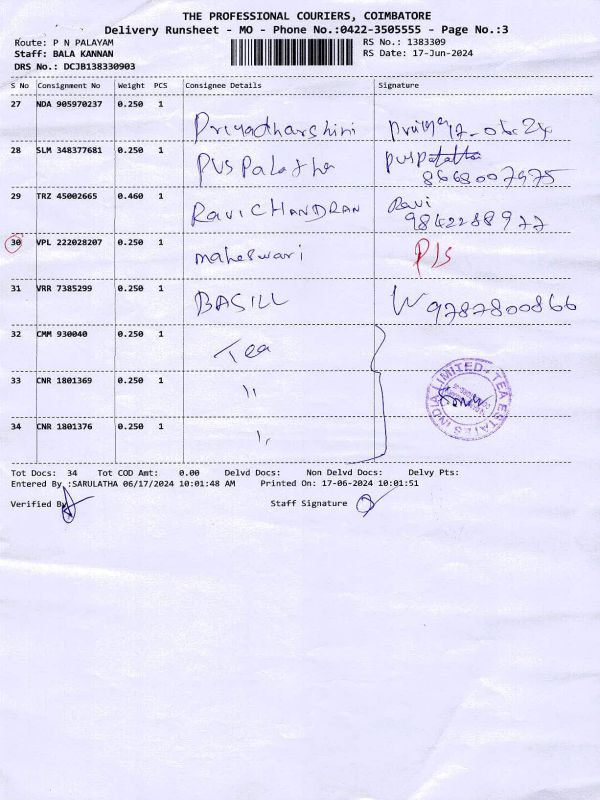 THE PROFESSIONAL COURIERS, COIMBATORE
Delivery Runsheet - MO - Phone No.:0422-3505555 - Page No.:3
Route: P N PALAYAM RS No.: 1383309
Staff: BALA KANNAN RS Date: 17-Jun-2024
DRS No.: DCJB138330903
S No Consignment No Weight PCS Consignee Details Signature
27 NDA 905970237 0.250 1 Priyadharshini
28 SLM 348377681 0.250 1 PVS Palatha
8668007975
29 TRZ 45002665 0.460 1 RAVICHANDRAN Ravi
9842288977
30 VPL 222028207 0.250 1 maheswari P/S
31 VRR 7385299 0.250 1 BASILL 9787800866
32 CMM 930040 0.250 1 Tea
33 CNR 1801369 0.250 1 "
34 CNR 1801376 0.250 1 "
TEA ESTATES INDIA LIMITED
Tot Docs: 34 Tot COD Amt: 0.00 Delvd Docs: Non Delvd Docs: Delvy Pts:
Entered By :SARULATHA 06/17/2024 10:01:48 AM Printed On: 17-06-2024 10:01:51
Verified By Staff Signature